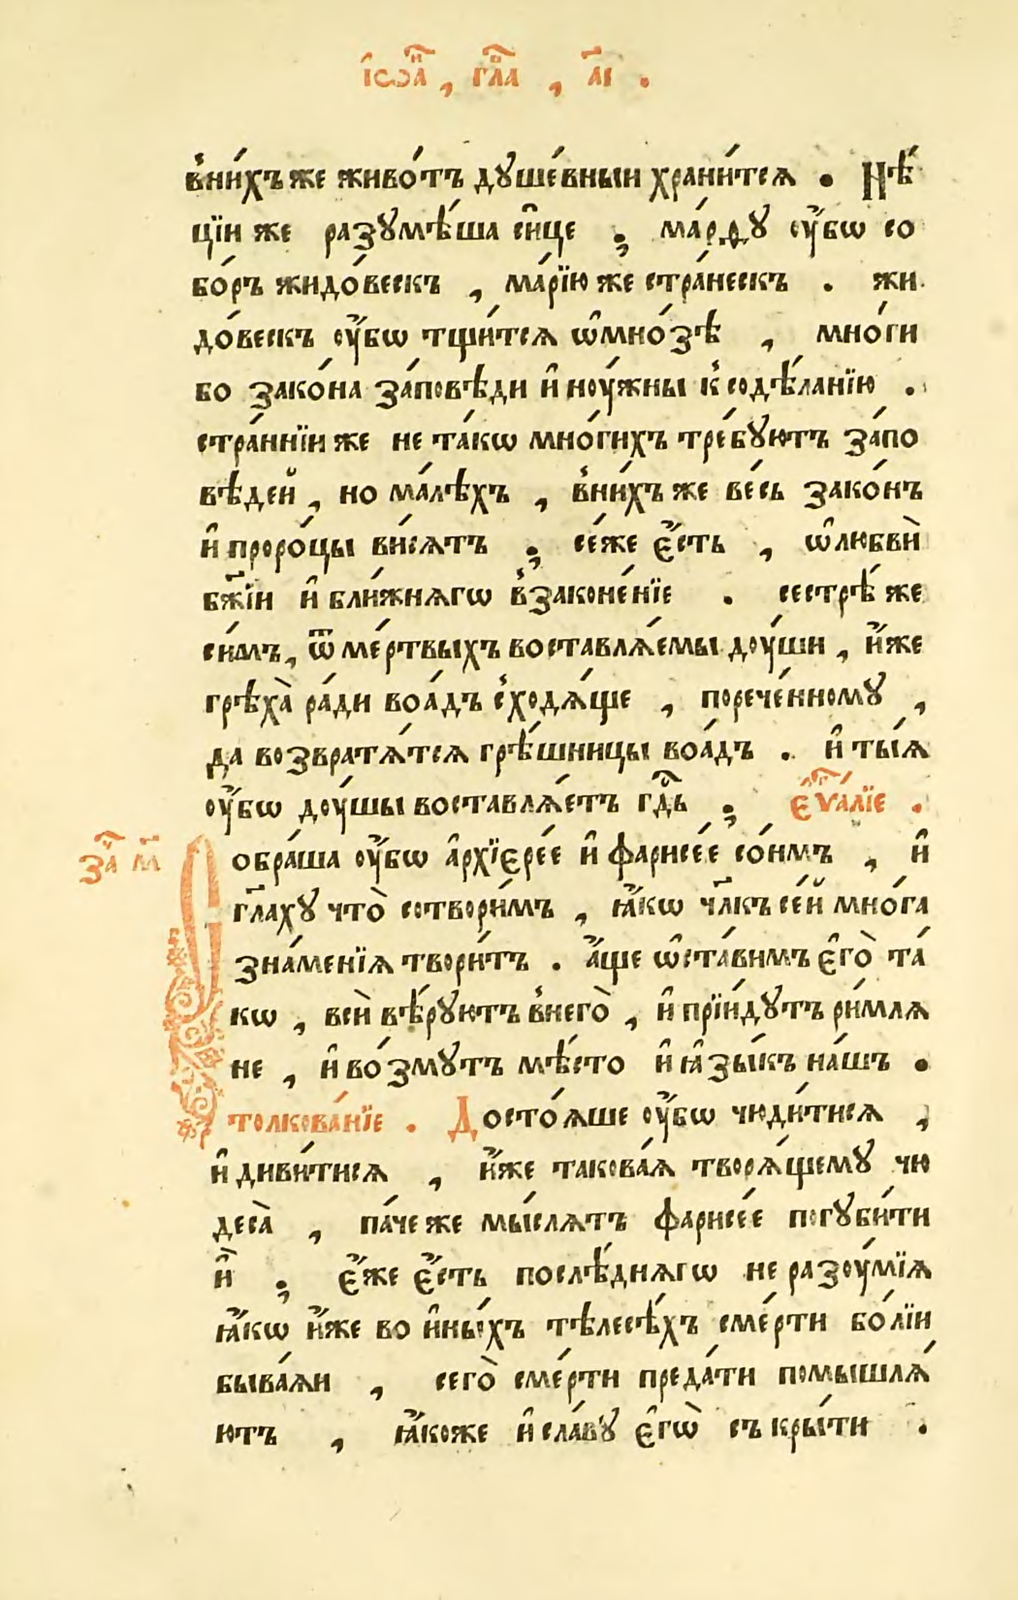 і҆ѡа́н , гла́ , а҃і .
в̾ни́хъ же живо́тъ дꙋше́вныи храни́тсѧ . Нѣ́
цїи же разꙋмѣ́ша си́це ; ма́рѳꙋ ᲂу҆́бѡ со
бо́ръ жидо́вескъ , ма́рїю же стра́нескъ . жи
до́вескъ ᲂу҆́бѡ тщи́тсѧ ѡ҆мно́зѣ , мно́ги
бо зако́на за́повѣди и҆ ноу́жны к̾ содѣ́ланїю .
стра́ннїи же не та́кѡ мно́гихъ тре́бꙋютъ за́по
вѣдей , но ма́лѣхъ , в̾ни́хъ же ве́сь зако́нъ
и҆ проро́цы ви́сѧтъ ; се́же є҆́сть , ѡ҆любвѝ
бж҃їи и҆ бли́жнѧгѡ в̾законе́нїе . сестрѣ́ же
си́мъ , ѿ ме́ртвыхъ воставлѧ́емы доу́ши , и҆́же
грѣха̀ ра́ди воа́дъ с̾ходѧ́ще , порече́нномꙋ ,
да возвратѧ́тсѧ грѣ́шницы воа́дъ . и҆ ты́ѧ
ᲂу҆́бѡ доу́шы воставлѧ́етъ гдⷭ҇ь ; є҆ѵⷢ҇а́лїе .
за҃ м҃
Собра́ша ᲂу҆́бѡ а҆рхїере́е и҆ фарисе́е со́нмъ , и҆
гл҃ахꙋ что̀ сотвори́мъ , ꙗ҆́кѡ чл҃къ се́й мно́га
зна́менїѧ твори́тъ . а҆́ще ѡ҆ста́вимъ є҆го̀ та́
кѡ , всѝ вѣ́рꙋютъ в̾него̀ , и҆ прїи́дꙋтъ ри́млѧ
не , и҆ во́змꙋтъ мѣ́сто и҆ ꙗ҆зы́къ на́шъ .
толкова́нїе . Досто́ѧше ᲂу҆́бѡ чюди́тисѧ ,
и҆ диви́тисѧ , и҆́же такова́ѧ творѧ́щемꙋ чю
деса̀ , па́че же мы́слѧтъ фарисе́е погꙋби́ти
и҆̀ ; є҆́же є҆́сть послѣ́днѧгѡ не разоу́мїѧ
ꙗ҆́кѡ и҆́же во и҆ны́хъ тѣлесѣ́хъ сме́рти бо́лїи
быва́ѧи , сего̀ сме́рти преда́ти помышлѧ́
ютъ , ꙗ҆́коже и҆ сла́вꙋ є҆гѡ̀ съкры́ти .